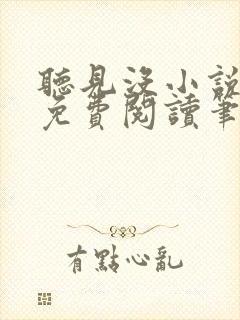 聽見沒小說
免費閱讀筆
有點心亂